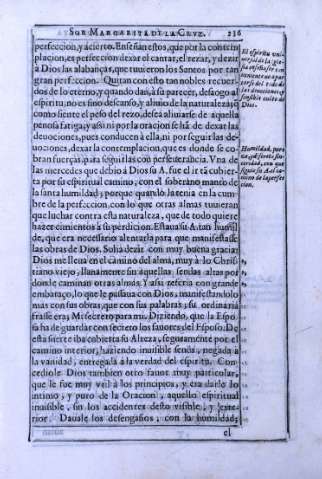 SOR MARGARITA DE LA CRVZ. 216
perfeccion, y acierto. Enseñan estos, que por la contem
placion, es perfeccion dexar el cantar, el rezar, y dezir
à Dios las alabanças, que tuuieron los Santos por tan
gran perfeccion. Quitan con esto tan nobles recuer-
dos de lo eterno, y quando dan, à su parecer, desaogo al
espiritu, no es sino descanso, y aliuio de la naturaleza, q̃
como siente el peso del rezo, desea aliuiarse de aquella
penosa fatiga, y assi ni por la oracion se ha de dexar las
deuociones, pues conducen à ella, ni por seguir las de-
uociones, dexar la contemplacion, que es donde se co-
bran fuerças para seguirlas con perseuerancia. Vna de
las mercedes que debiò à Dios su A. fue el ir tã cubier-
ta por su espiritual camino, con el soberano manto de
la santa humildad, y porque quando la tenia en la cum-
bre de la perfeccion, con lo que otras almas tuuieran
que luchar contra esta naturaleza, que de todo quiere
hazer caminos à su perdicion. Estaua su A. tan humil-
de, que era necessario alentarla para que manifestasse
las obras de Dios. Solia dezir con muy buena gracia:
Dios me lleua en el camino del alma, muy à lo Chris-
tiano viejo, llanamente sin aquellas sendas altas por
donde caminan otras almas. Y assi referia con grande
embaraço, lo que le passaua con Dios, manifestandolo
mas con sus obras, que con sus palabras; su ordinaria
frasse era; Mi secreto para mi. Diziendo, que la Espo-
sa ha de guardar con secreto los fauores del Esposo. De
esta suerte iba cubierta su Alteza, seguramente por el
camino interior, haziendo inuisible senda, negada à
la vanidad, entregada à la verdad del espiritu. Con-
cediole Dios tambien otro fauor muy particular,
que le fue muy vtil à los principios, y era darlo lo
intimo, y puro de la Oracion, aquello espiritual
inuisible, sin los accidentes desto visible, y exte-
rior. Dauale los desengaños, con la humildad;
el
El espiritu uni-
Dios.
Humildad, pero